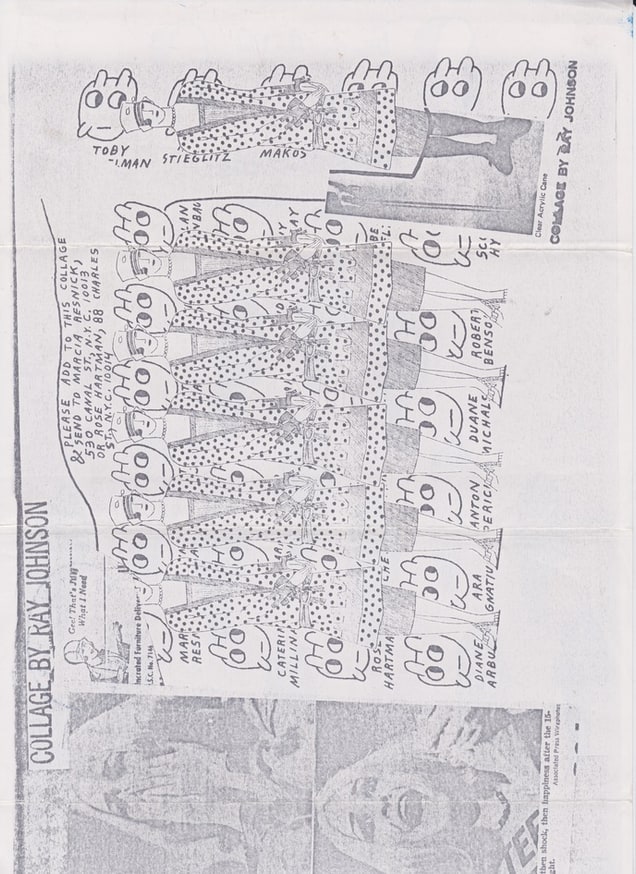 COLLAGE BY RAY JOHNSON
Clear Acrylic Cane
TOBY
MAN
STIEGLITZ
MAKOS
PLEASE ADD TO THIS COLLAGE
& SEND TO MARCIA RESNICK,
530 CANAL ST., N.Y. C. 10013
OR ROSE HARTMAN, 88 CHARLES
ST. N.Y.C. 10014
SCI
HY
ROBERT
BENSO
DUANE
MICHALS
ANTON
PERICH
ARA
GNATIU
DIANE
ARBU
MAR
RES
CATERI
MILLIN
ROS
HARTMA
CHE
BE
Gee! That's Just
What I Need
Uncrated Furniture Deliver
COLLAGE BY RAY JOHNSON
then shock, then happiness after the 15-
ght.
Associated Press Wirephotos